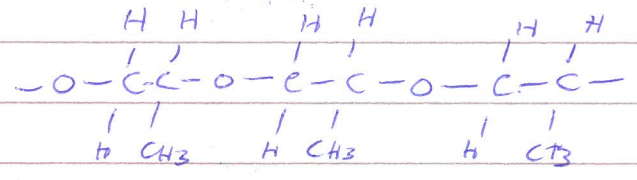 H H H H H H
– O – C – C – O – C – C – O – C – C –
H CH3 H CH3 H CH3